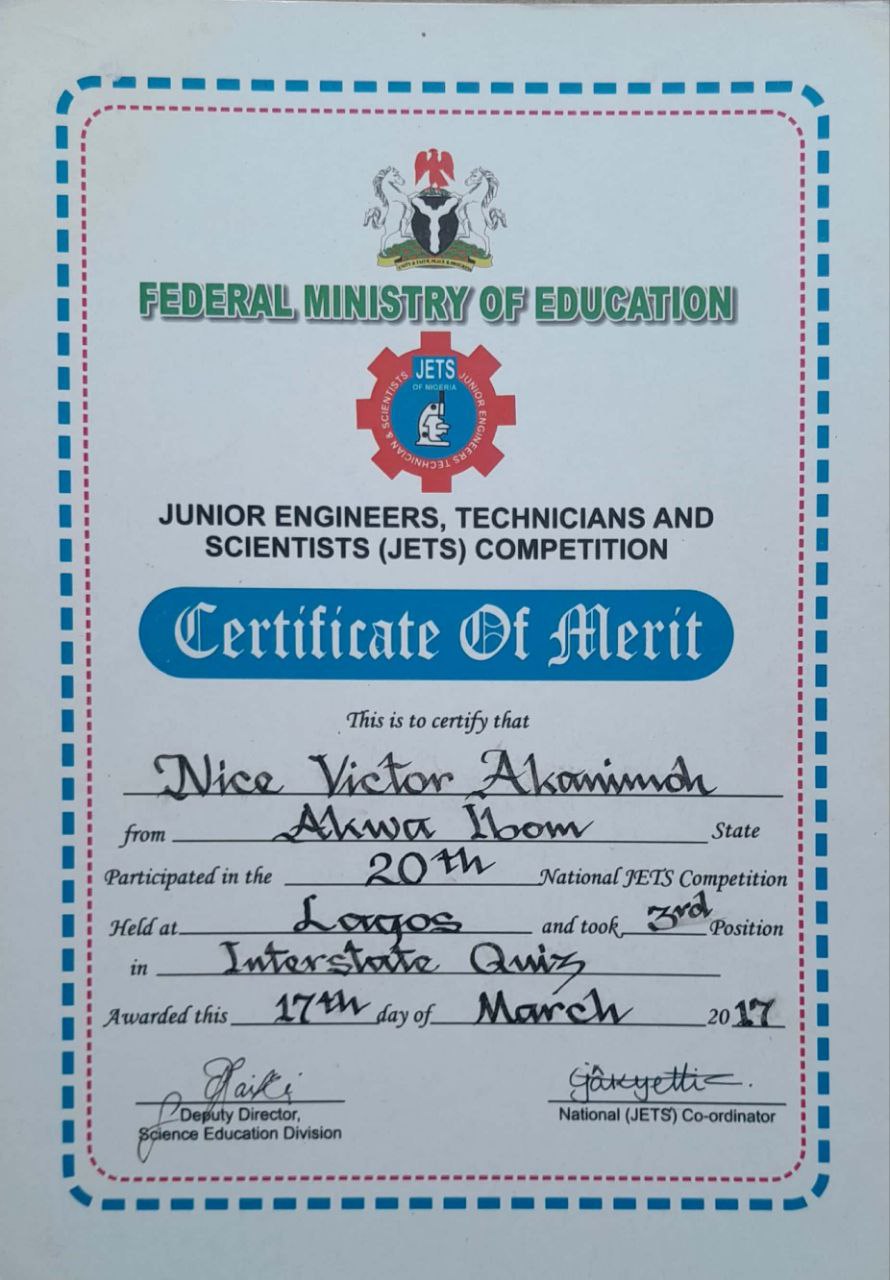 UNITY & FAITH, PEACE & PROGRESS
FEDERAL MINISTRY OF EDUCATION
JETS
OF NIGERIA
JUNIOR ENGINEERS TECHNICIAN & SCIENTISTS
JUNIOR ENGINEERS, TECHNICIANS AND
SCIENTISTS (JETS) COMPETITION
Certificate Of Merit
This is to certify that
Nice Victor Akanimoh
from Akwa Ibom State
Participated in the 20th National JETS Competition
Held at Lagos and took 3rd Position
in Interstate Quiz
Awarded this 17th day of March 2017
Deputy Director,
Science Education Division
National (JETS) Co-ordinator